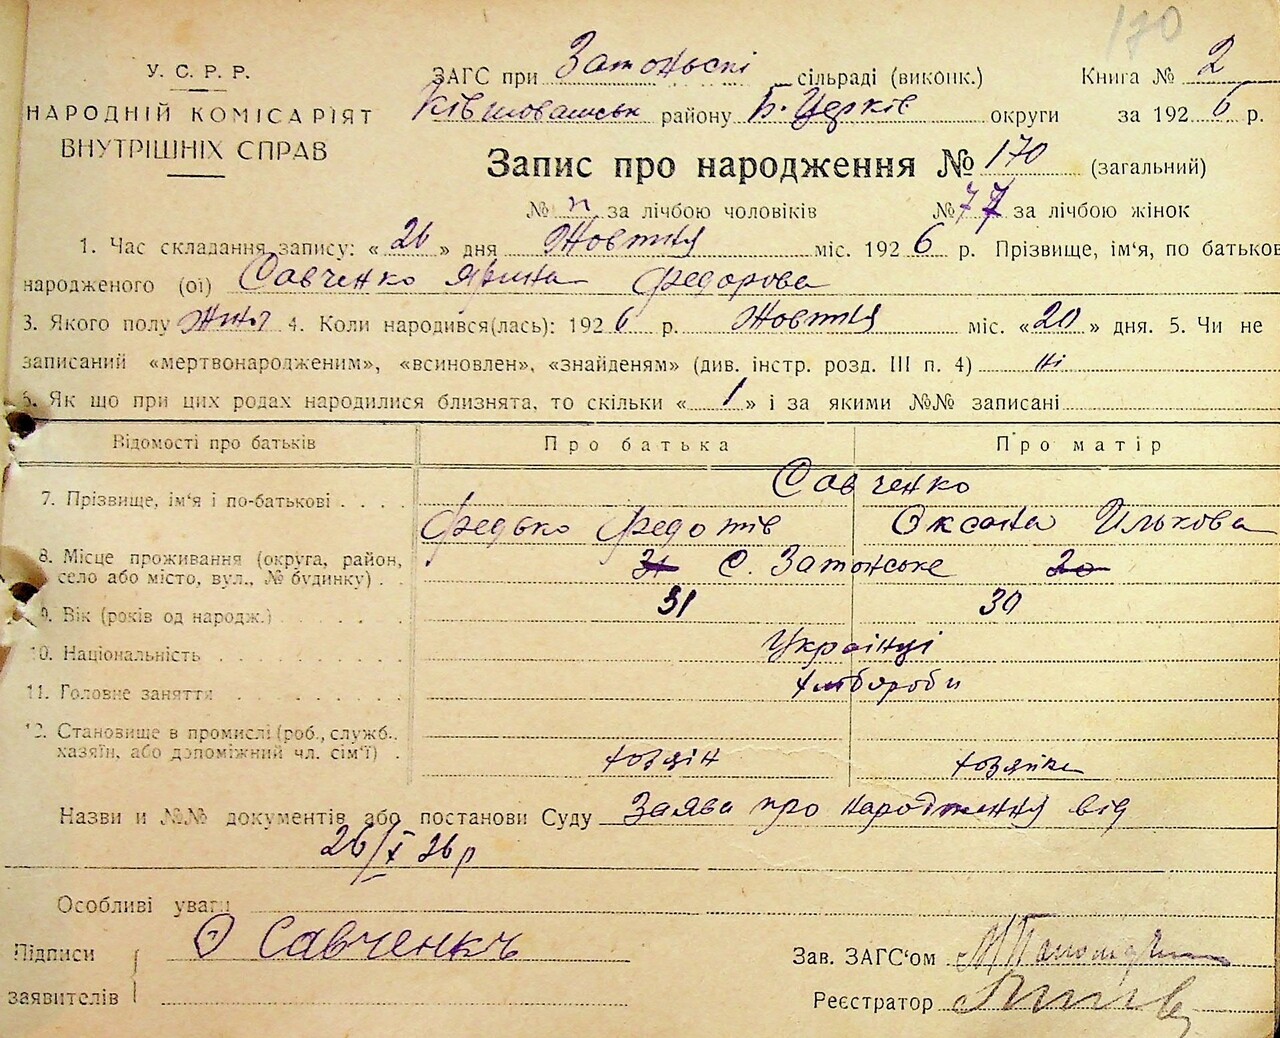 170
У. С. Р. Р.
НАРОДНІЙ КОМІСАРІЯТ
ВНУТРІШНІХ СПРАВ
ЗАГС при Затонські сільраді (виконк.) Книга № 2
району Б. Церків округи за 1926 р.
Запис про народження № 170 (загальний)
№ п за лічбою чоловіків № 77 за лічбою жінок
1. Час складання запису: « 26 » дня Жовтня міс. 1926 р. Прізвище, ім'я, по батьков
народженого (ої) Савченко Ярина Федорова
3. Якого полу 4. Коли народився(лась): 1926 р. Жовтня міс. «20» дня. 5. Чи не
записаний «мертвонародженим», «всиновлен», «знайденям» (див. інстр. розд. III п. 4) ні
6. Як що при цих родах народилися близнята, то скільки « 1 » і за якими №№ записані
Відомості про батьків Про батька Про матір
7. Прізвище, ім'я і по-батькові Савченко
Федько Федотів Оксана Илькова
8. Місце проживання (округа, район,
село або місто, вул., № будинку) 31 С. Затонське 20
9. Вік (років од народж.) 31 30
10. Національність Українці
11. Головне заняття Хлібороби
12. Становище в промислі (роб., служб.,
хазяїн, або допоміжний чл. сім'ї) хозяін хозяйка
Назви и №№ документів або постанови Суду Заява про народження від
26/X 26 р
Особливі уваги
Підписи О Савченкъ Зав. ЗАГС'ом
заявителів Реєстратор